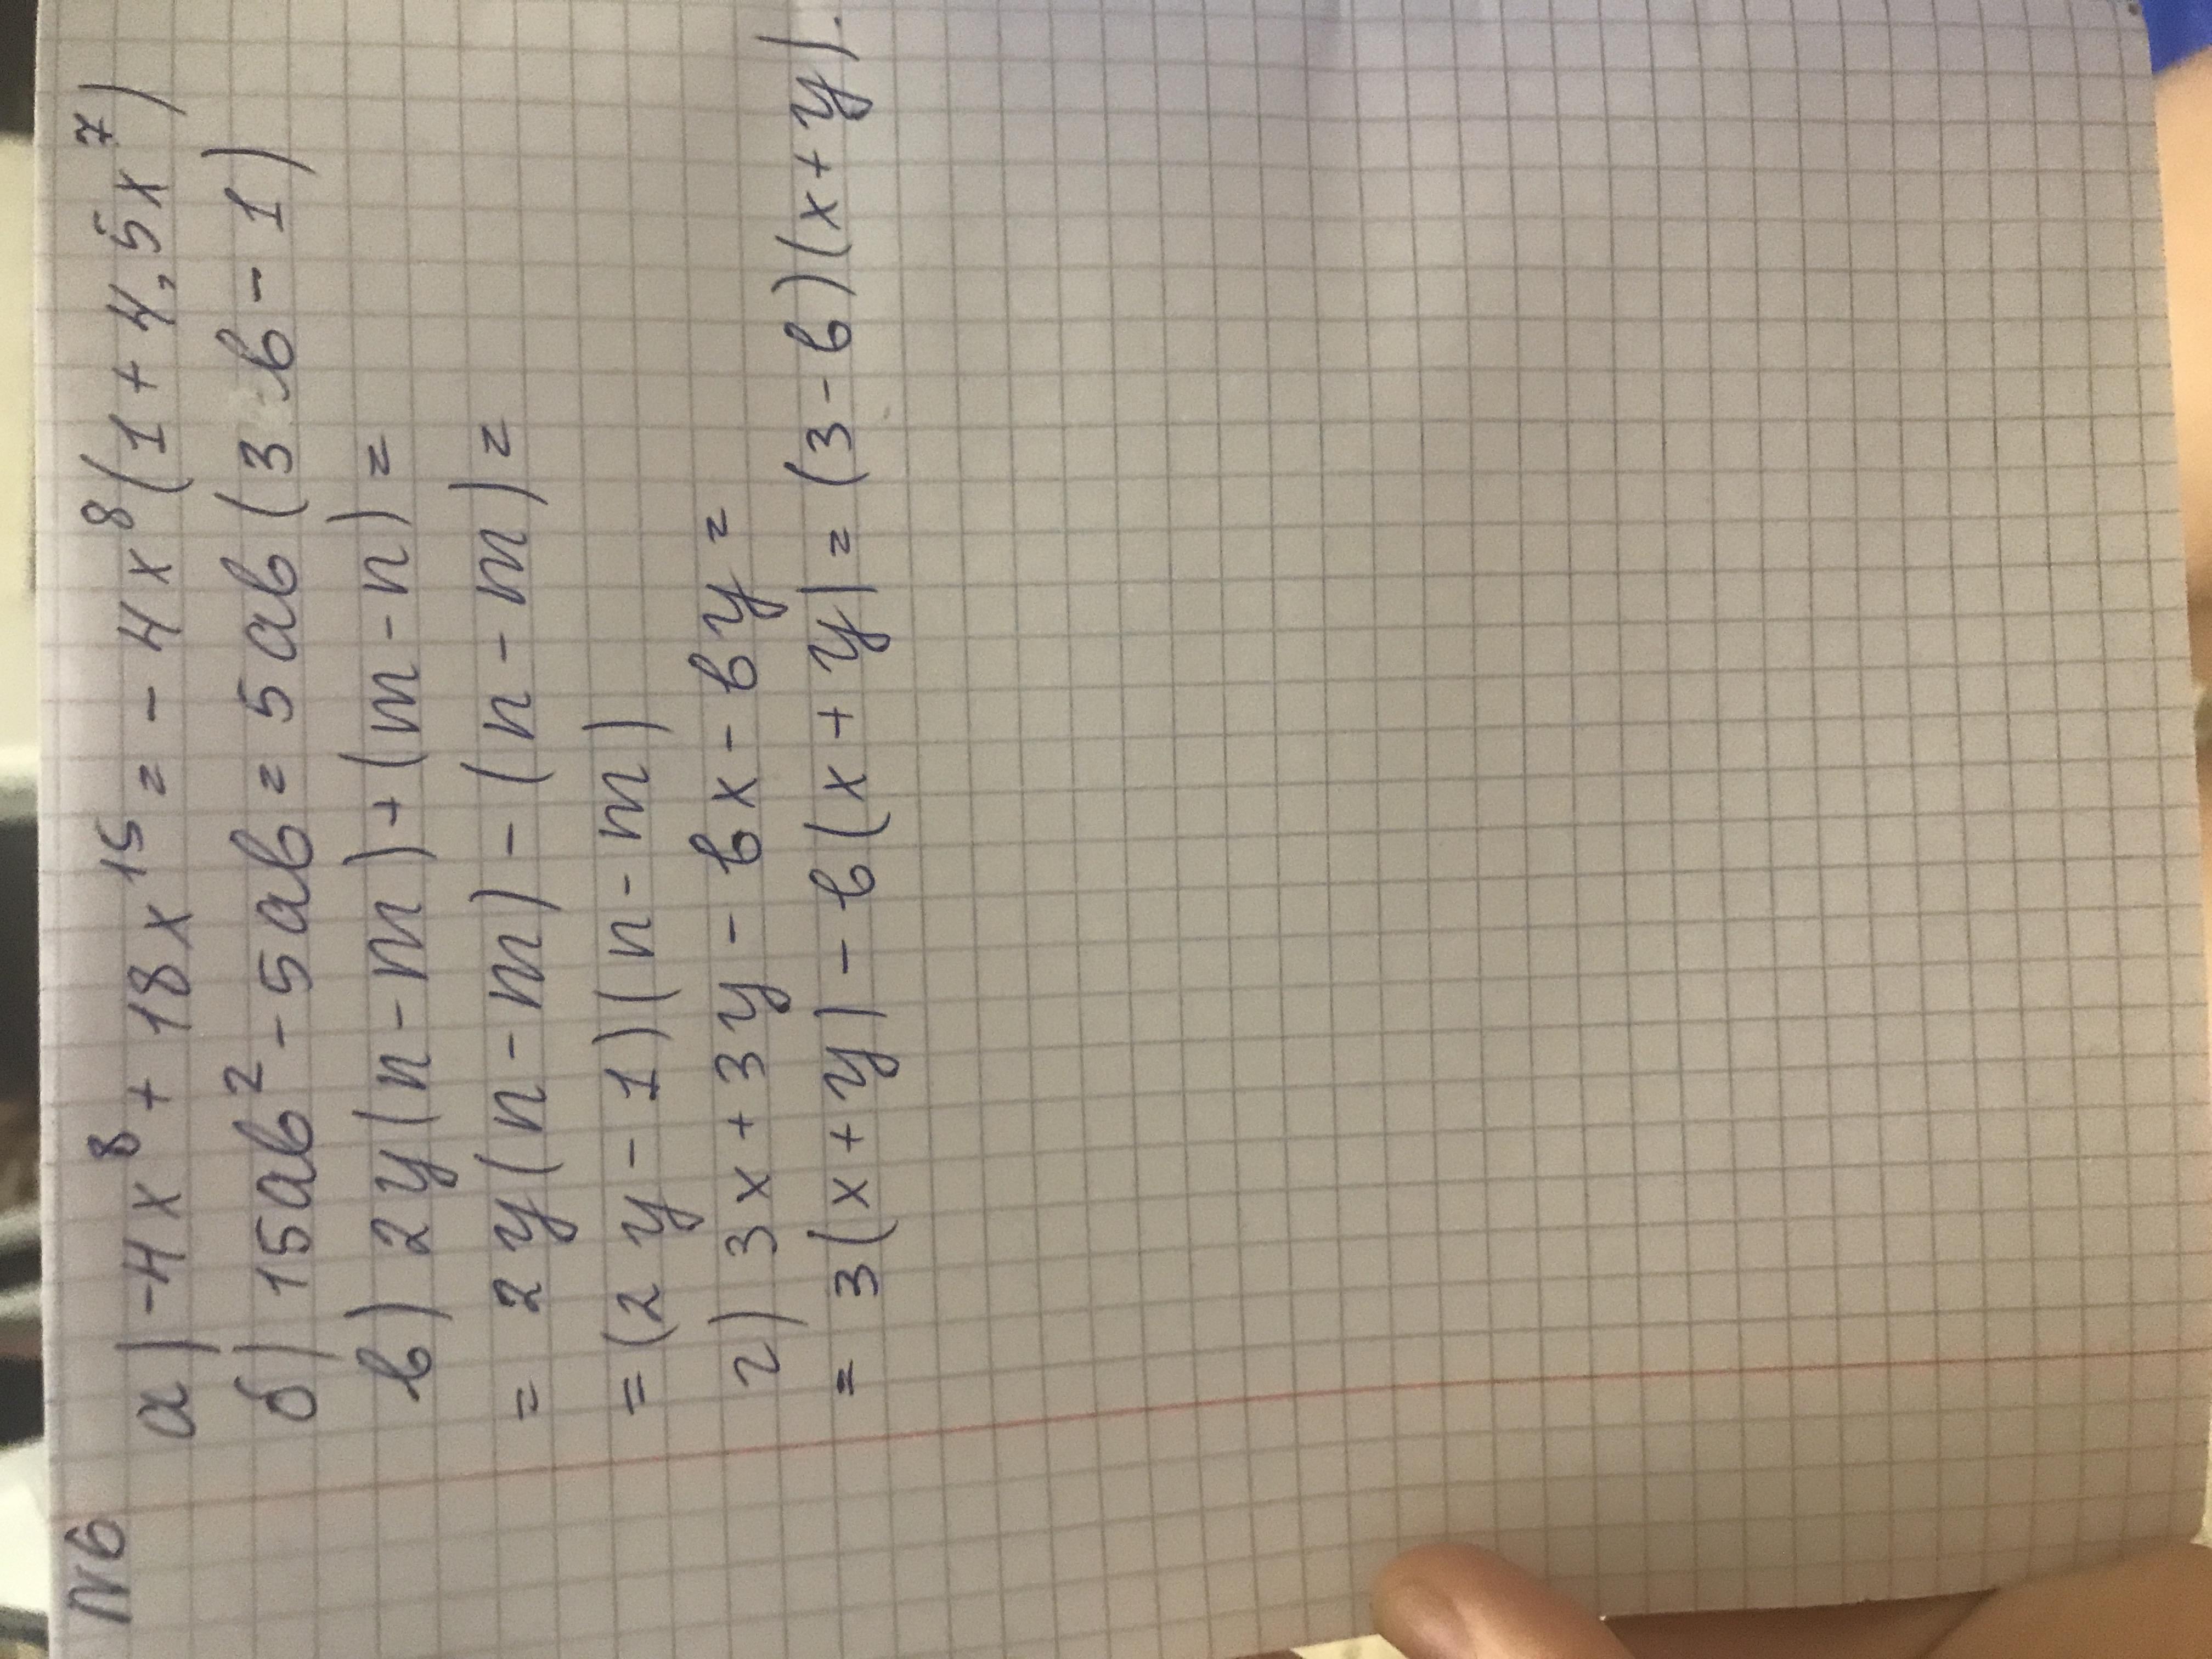 №6
а) -4x⁸ + 18x¹⁵ = - 4x⁸(1 + 4,5x⁷)
б) 15ab² - 5ab = 5ab(3b - 1)
в) 2y(n - m) + (m - n) =
= 2y(n - m) - (n - m) =
= (2y - 1)(n - m)
г) 3x + 3y - bx - by =
= 3(x + y) - b(x + y) = (3 - b)(x + y).